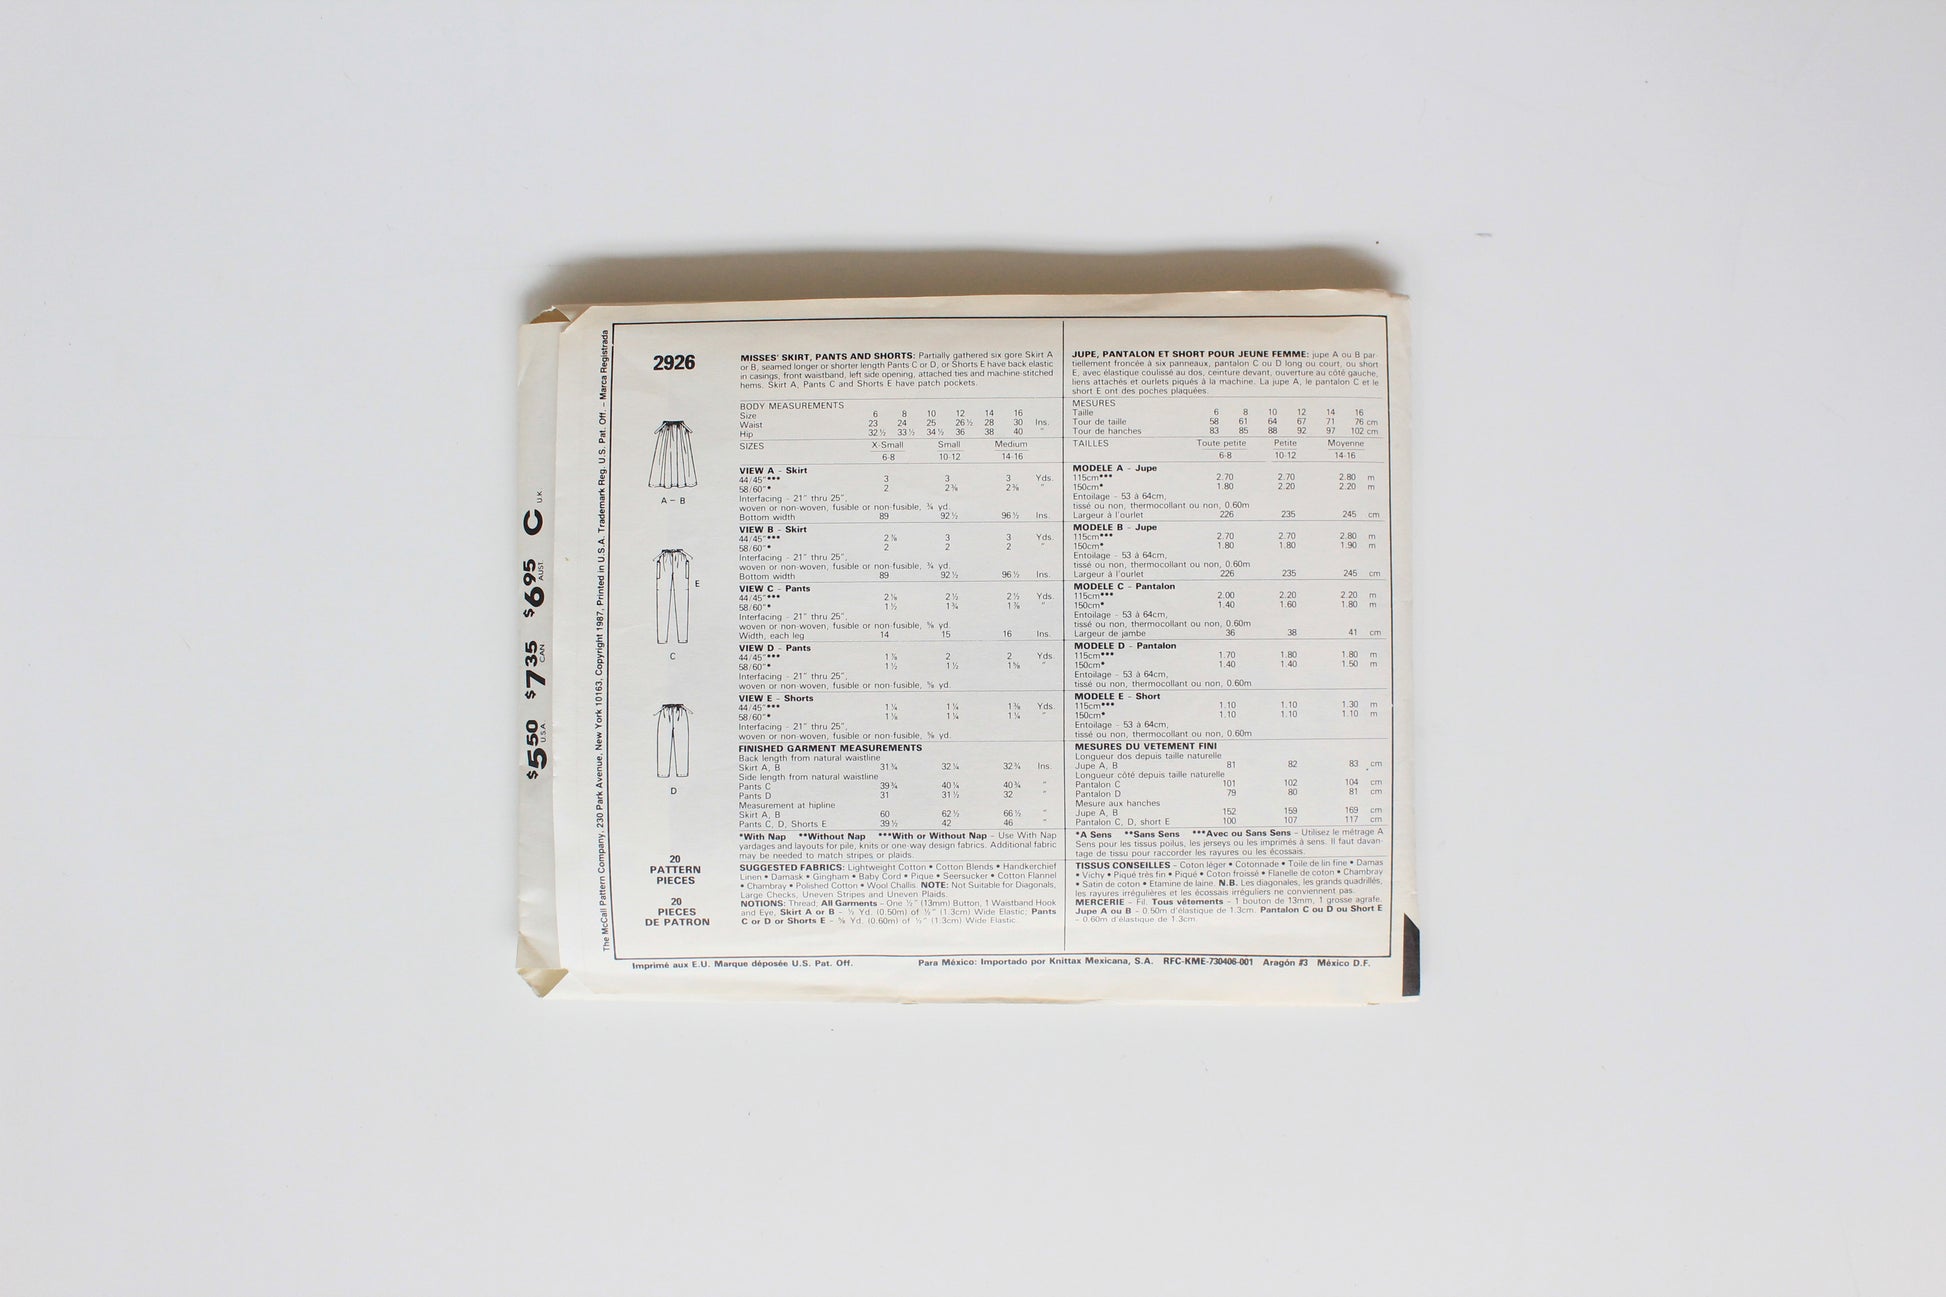 2926
MISSES' SKIRT, PANTS AND SHORTS: Partially gathered six gore Skirt A
or B, seamed longer or shorter length Pants C or D, or Shorts E have back elastic
in casings, front waistband, left side opening, attached ties and machine-stitched
hems. Skirt A, Pants C and Shorts E have patch pockets.
BODY MEASUREMENTS
Size 6 8 10 12 14 16
Waist 23 24 25 26½ 28 30 Ins.
Hip 32½ 33½ 34½ 36 38 40 "
SIZES X-Small Small Medium
6-8 10-12 14-16
VIEW A - Skirt
44/45"*** 3 3 3 Yds.
58/60"* 2 2⅜ 2⅜ "
Interfacing - 21" thru 25",
woven or non-woven, fusible or non-fusible, ¾ yd.
Bottom width 89 92½ 96½ Ins.
VIEW B - Skirt
44/45"*** 2⅞ 3 3 Yds.
58/60"* 2 2 2 "
Interfacing - 21" thru 25",
woven or non-woven, fusible or non-fusible, ¾ yd.
Bottom width 89 92½ 96½ Ins.
VIEW C - Pants
44/45"*** 2⅛ 2½ 2½ Yds.
58/60"* 1½ 1¾ 1⅞ "
Interfacing - 21" thru 25",
woven or non-woven, fusible or non-fusible, ⅝ yd.
Width, each leg 14 15 16 Ins.
VIEW D - Pants
44/45"*** 1⅞ 2 2 Yds.
58/60"* 1½ 1½ 1⅝ "
Interfacing - 21" thru 25",
woven or non-woven, fusible or non-fusible, ⅝ yd.
VIEW E - Shorts
44/45"*** 1¼ 1¼ 1⅜ Yds.
58/60"* 1⅛ 1¼ 1¼ "
Interfacing - 21" thru 25",
woven or non-woven, fusible or non-fusible, ⅝ yd.
FINISHED GARMENT MEASUREMENTS
Back length from natural waistline
Skirt A, B 31¾ 32¼ 32¾ Ins.
Side length from natural waistline
Pants C 39¾ 40¼ 40¾ "
Pants D 31 31½ 32 "
Measurement at hipline
Skirt A, B 60 62½ 66½ "
Pants C, D, Shorts E 39½ 42 46 "
*With Nap **Without Nap ***With or Without Nap - Use With Nap
yardages and layouts for pile, knits or one-way design fabrics. Additional fabric
may be needed to match stripes or plaids.
SUGGESTED FABRICS: Lightweight Cotton • Cotton Blends • Handkerchief
Linen • Damask • Gingham • Baby Cord • Pique • Seersucker • Cotton Flannel
• Chambray • Polished Cotton • Wool Challis. NOTE: Not Suitable for Diagonals,
Large Checks, Uneven Stripes and Uneven Plaids.
NOTIONS: Thread; All Garments - One ½" (13mm) Button, 1 Waistband Hook
and Eye, Skirt A or B - ½ Yd. (0.50m) of ½" (1.3cm) Wide Elastic; Pants
C or D or Shorts E - ⅝ Yd. (0.60m) of ½" (1.3cm) Wide Elastic.
JUPE, PANTALON ET SHORT POUR JEUNE FEMME: jupe A ou B par-
tiellement froncée à six panneaux, pantalon C ou D long ou court, ou short
E, avec élastique coulissé au dos, ceinture devant, ouverture au côté gauche,
liens attachés et ourlets piqués à la machine. La jupe A, le pantalon C et le
short E ont des poches plaquées.
MESURES
Taille 6 8 10 12 14 16
Tour de taille 58 61 64 67 71 76 cm
Tour de hanches 83 85 88 92 97 102 cm
TAILLES Toute petite Petite Moyenne
6-8 10-12 14-16
MODELE A - Jupe
115cm*** 2.70 2.70 2.80 m
150cm* 1.80 2.20 2.20 m
Entoilage - 53 à 64cm,
tissé ou non, thermocollant ou non, 0.60m
Largeur à l'ourlet 226 235 245 cm
MODELE B - Jupe
115cm*** 2.70 2.70 2.80 m
150cm* 1.80 1.80 1.90 m
Entoilage - 53 à 64cm,
tissé ou non, thermocollant ou non, 0.60m
Largeur à l'ourlet 226 235 245 cm
MODELE C - Pantalon
115cm*** 2.00 2.20 2.20 m
150cm* 1.40 1.60 1.80 m
Entoilage - 53 à 64cm,
tissé ou non, thermocollant ou non, 0.60m
Largeur de jambe 36 38 41 cm
MODELE D - Pantalon
115cm*** 1.70 1.80 1.80 m
150cm* 1.40 1.40 1.50 m
Entoilage - 53 à 64cm,
tissé ou non, thermocollant ou non, 0.60m
MODELE E - Short
115cm*** 1.10 1.10 1.30 m
150cm* 1.10 1.10 1.10 m
Entoilage - 53 à 64cm,
tissé ou non, thermocollant ou non, 0.60m
MESURES DU VETEMENT FINI
Longueur dos depuis taille naturelle
Jupe A, B 81 82 83 cm
Longueur côté depuis taille naturelle
Pantalon C 101 102 104 cm
Pantalon D 79 80 81 cm
Mesure aux hanches
Jupe A, B 152 159 169 cm
Pantalon C, D, short E 100 107 117 cm
*A Sens **Sans Sens ***Avec ou Sans Sens - Utilisez le métrage A
Sens pour les tissus poilus, les jerseys ou les imprimés à sens. Il faut davan-
tage de tissu pour raccorder les rayures ou les écossais.
TISSUS CONSEILLES - Coton léger • Cotonnade • Toile de lin fine • Damas
• Vichy • Piqué très fin • Piqué • Coton froissé • Flanelle de coton • Chambray
• Satin de coton • Etamine de laine. N.B. Les diagonales, les grands quadrillés,
les rayures irrégulières et les écossais irréguliers ne conviennent pas.
MERCERIE - Fil. Tous vêtements - 1 bouton de 13mm, 1 grosse agrafe.
Jupe A ou B - 0.50m d'élastique de 1.3cm. Pantalon C ou D ou Short E
- 0.60m d'élastique de 1.3cm.
A - B
E
C
D
20
PATTERN
PIECES
20
PIECES
DE PATRON
Imprimé aux E.U. Marque déposée U.S. Pat. Off.
Para México: Importado por Knittax Mexicana, S.A. RFC-KME-730406-001 Aragón #3 México D.F.
The McCall Pattern Company, 230 Park Avenue, New York 10163, Copyright 1987, Printed in U.S.A. Trademark Reg. U.S. Pat. Off. - Marca Registrada
$5.50 U.S.A. $7.35 CAN $6.95 AUST. C U.K.